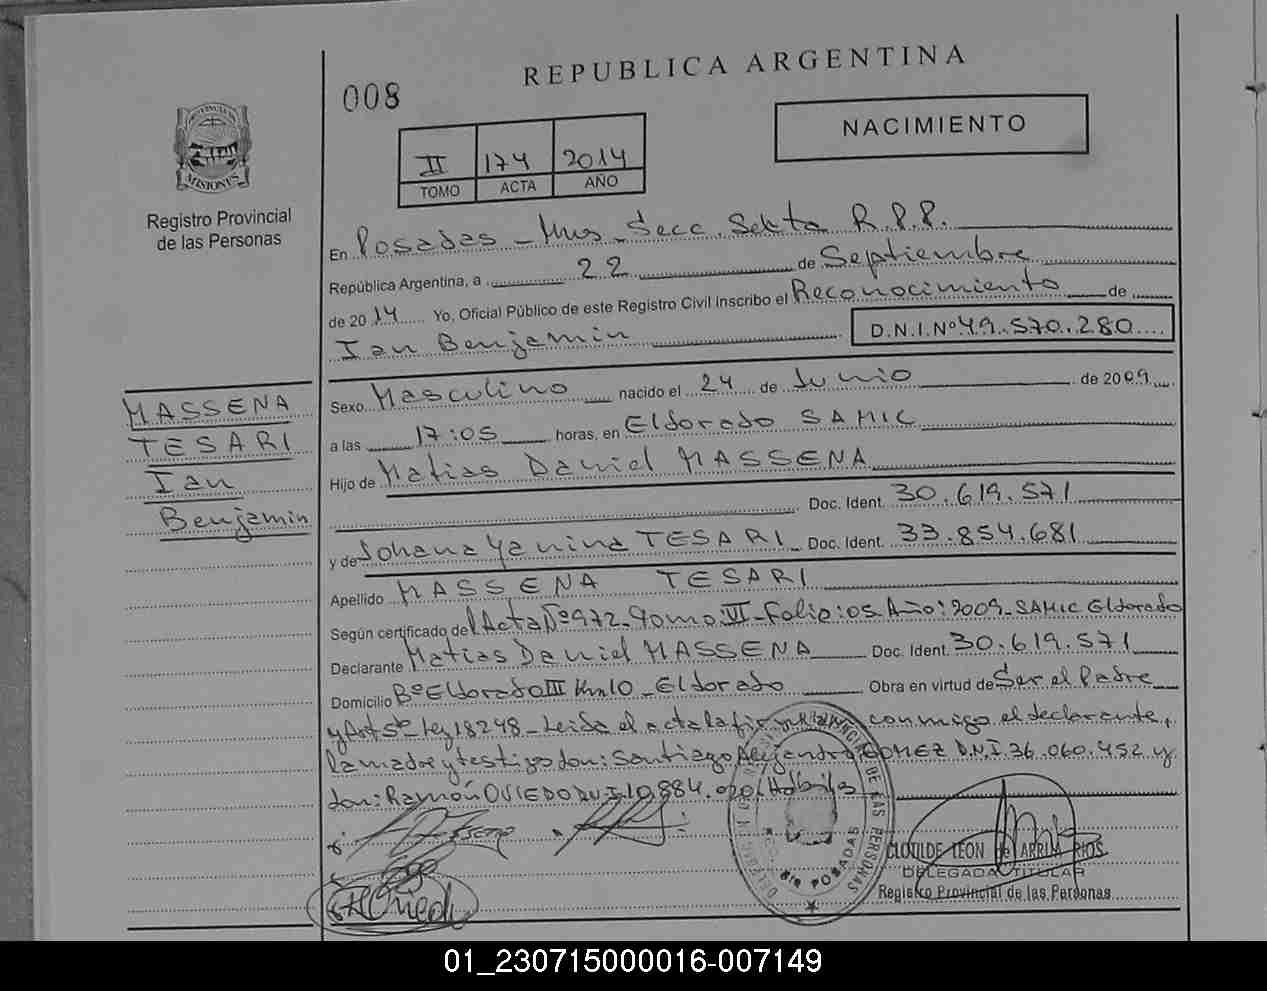 REPUBLICA ARGENTINA
008
NACIMIENTO
II 174 2014
TOMO ACTA AÑO
PROVINCIA DE
MISIONES
Registro Provincial
de las Personas
En Posadas - Mns - Secc. Sexta R.P.P.
República Argentina, a 22 de Septiembre
de 2014 Yo, Oficial Público de este Registro Civil Inscribo el Reconocimiento de
Ian Benjamin D.N.I.Nº 49.570.280
MASSENA
TESARI
Ian
Benjamin
Sexo Masculino nacido el 24 de Junio de 2009
a las 17:05 horas, en Eldorado SAMIC
Hijo de Matias Daniel MASSENA
Doc. Ident. 30.619.571
y de Johana Yanina TESARI Doc. Ident. 33.854.681
Apellido MASSENA TESARI
Según certificado de Acta Nº 972 - Tomo VI - Folio: 05 Año: 2009 - SAMIC Eldorado
Declarante Matias Daniel MASSENA Doc. Ident. 30.619.571
Domicilio Bº Eldorado III Km 10 - Eldorado Obra en virtud de Ser el Padre
y Art 5º Ley 18248 - Leida el acta la firman conmigo el declarante,
la madre y testigos don: Santiago Alejandro GOMEZ D.N.I. 36.060.452 y
don: Ramón OVIEDO D.N.I 10.884.020 / Hábiles
CLOTILDE LEON de ARRUA RIOS
DELEGADA TITULAR
Registro Provincial de las Personas
DE LAS PERSONAS
6ta POSADAS
01_230715000016-007149